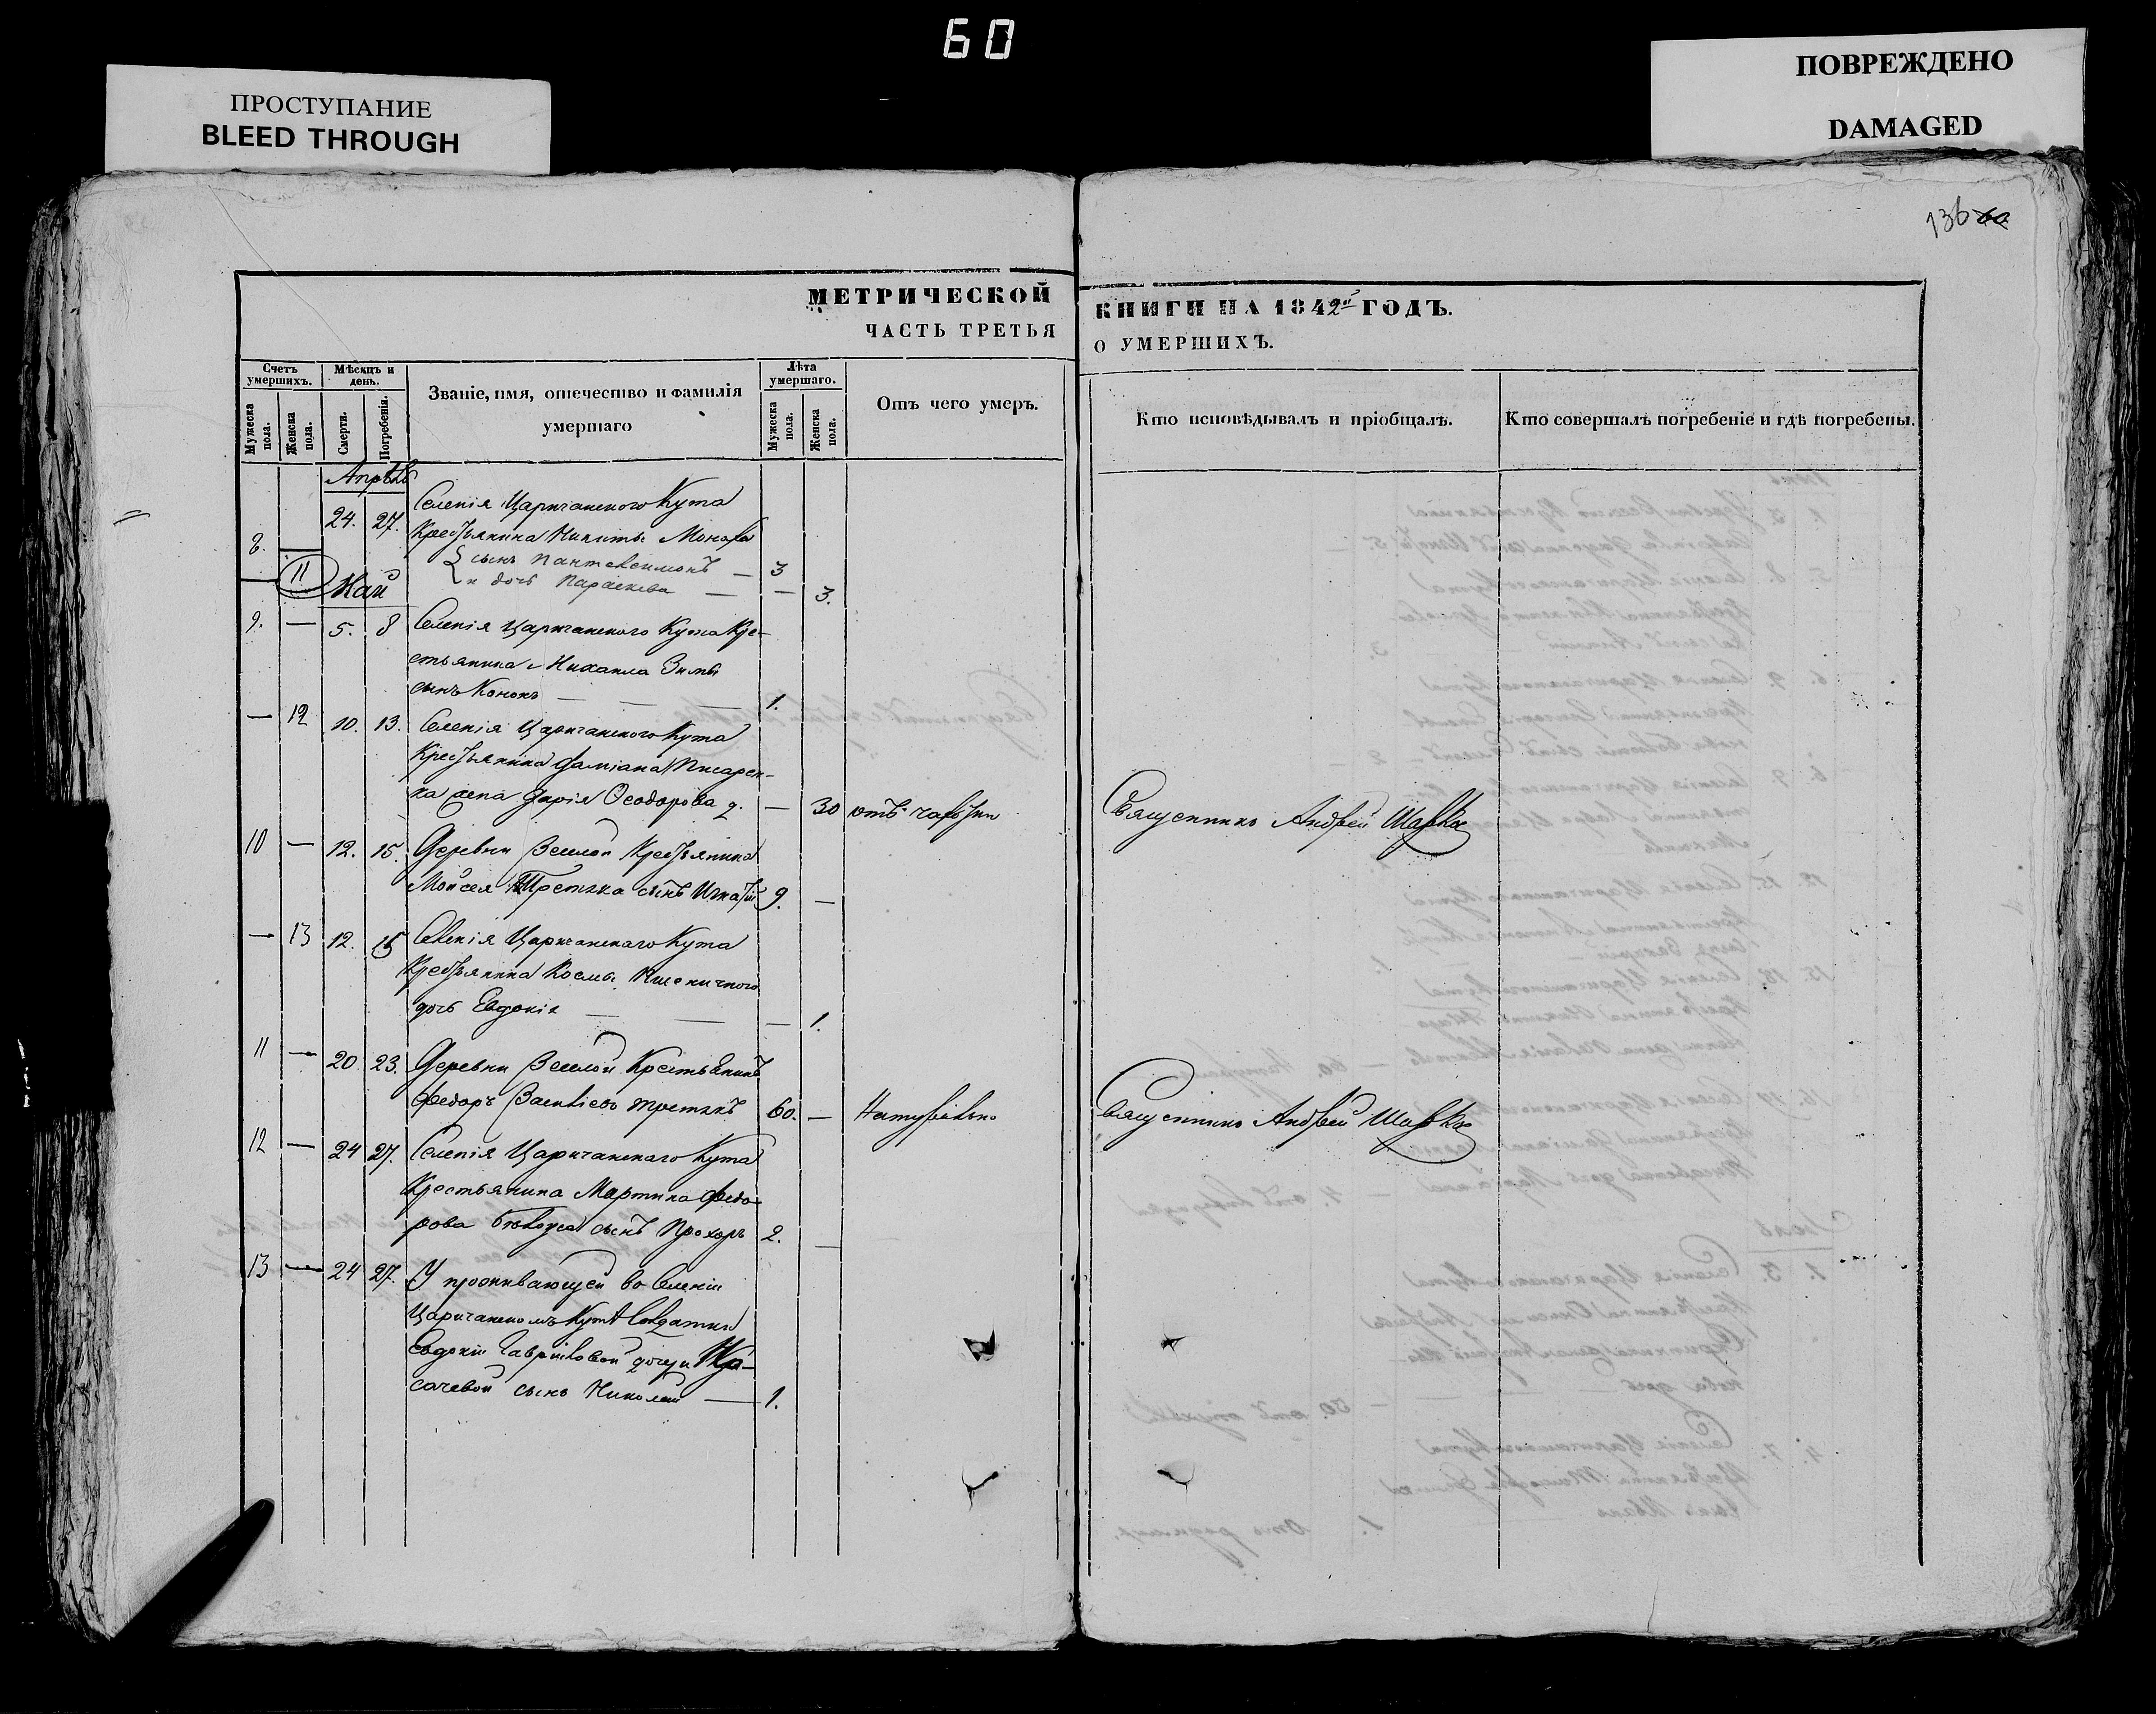 60
ПРОСТУПАНИЕ
BLEED THROUGH
ПОВРЕЖДЕНО
DAMAGED
136 60
МЕТРИЧЕСКОЙ
ЧАСТЬ ТРЕТЬЯ
КНИГИ НА 1842й ГОДЪ.
О УМЕРШИХЪ.
Счетъ умершихъ.
Мужеска пола.
Женска пола.
Мѣсяцъ и день.
Смерти.
Погребенія.
Званіе, имя, отечество и фамилія
умершаго
Лѣта умершаго.
Мужеска пола.
Женска пола.
Отъ чего умеръ.
Кто исповѣдывалъ и пріобщалъ.
Кто совершалъ погребеніе и гдѣ погребены.
Апрѣль
8. 24. 27. Селенія Царичанского Кута
Крестьянина Никиты
11 сынъ Пантелеимонъ — 3
и дочь Параскева — — 3.
Май
9. — 5. 8 Селенія Царичанского Кута Кре-
стьянина Михаила Зимы
сынъ Кононъ — — — 1.
— 12 10. 13. Селенія Царичанского Кута
Крестьянина Даміана Писарен-
ка жена Дарія Ѳеодорова д. — 30 отъ Священникъ Андрей
10 — 12. 15. Деревни Веселой Крестьянина
Мойсея Третяка сынъ Игнатій 9. —
— 13 12. 15 Селенія Царичанскаго Кута
Крестьянина Космы Пшеничного
дочь Евдокія — — — 1.
11 — 20 23. Деревни Веселой Крестьянинъ
Федоръ Васильевъ Третякъ 60. — Натурально Священникъ Андрей
12 — 24 27. Селенія Царичанскаго Кута
Крестьянина Мартина Федо-
рова сынъ Прохоръ 2. —
13 — 24 27. У проживающей во Селеніи
Царичанскомъ Кутѣ Солдатки
Евдокіи Гавриловой дочери
сынъ Николай — 1.